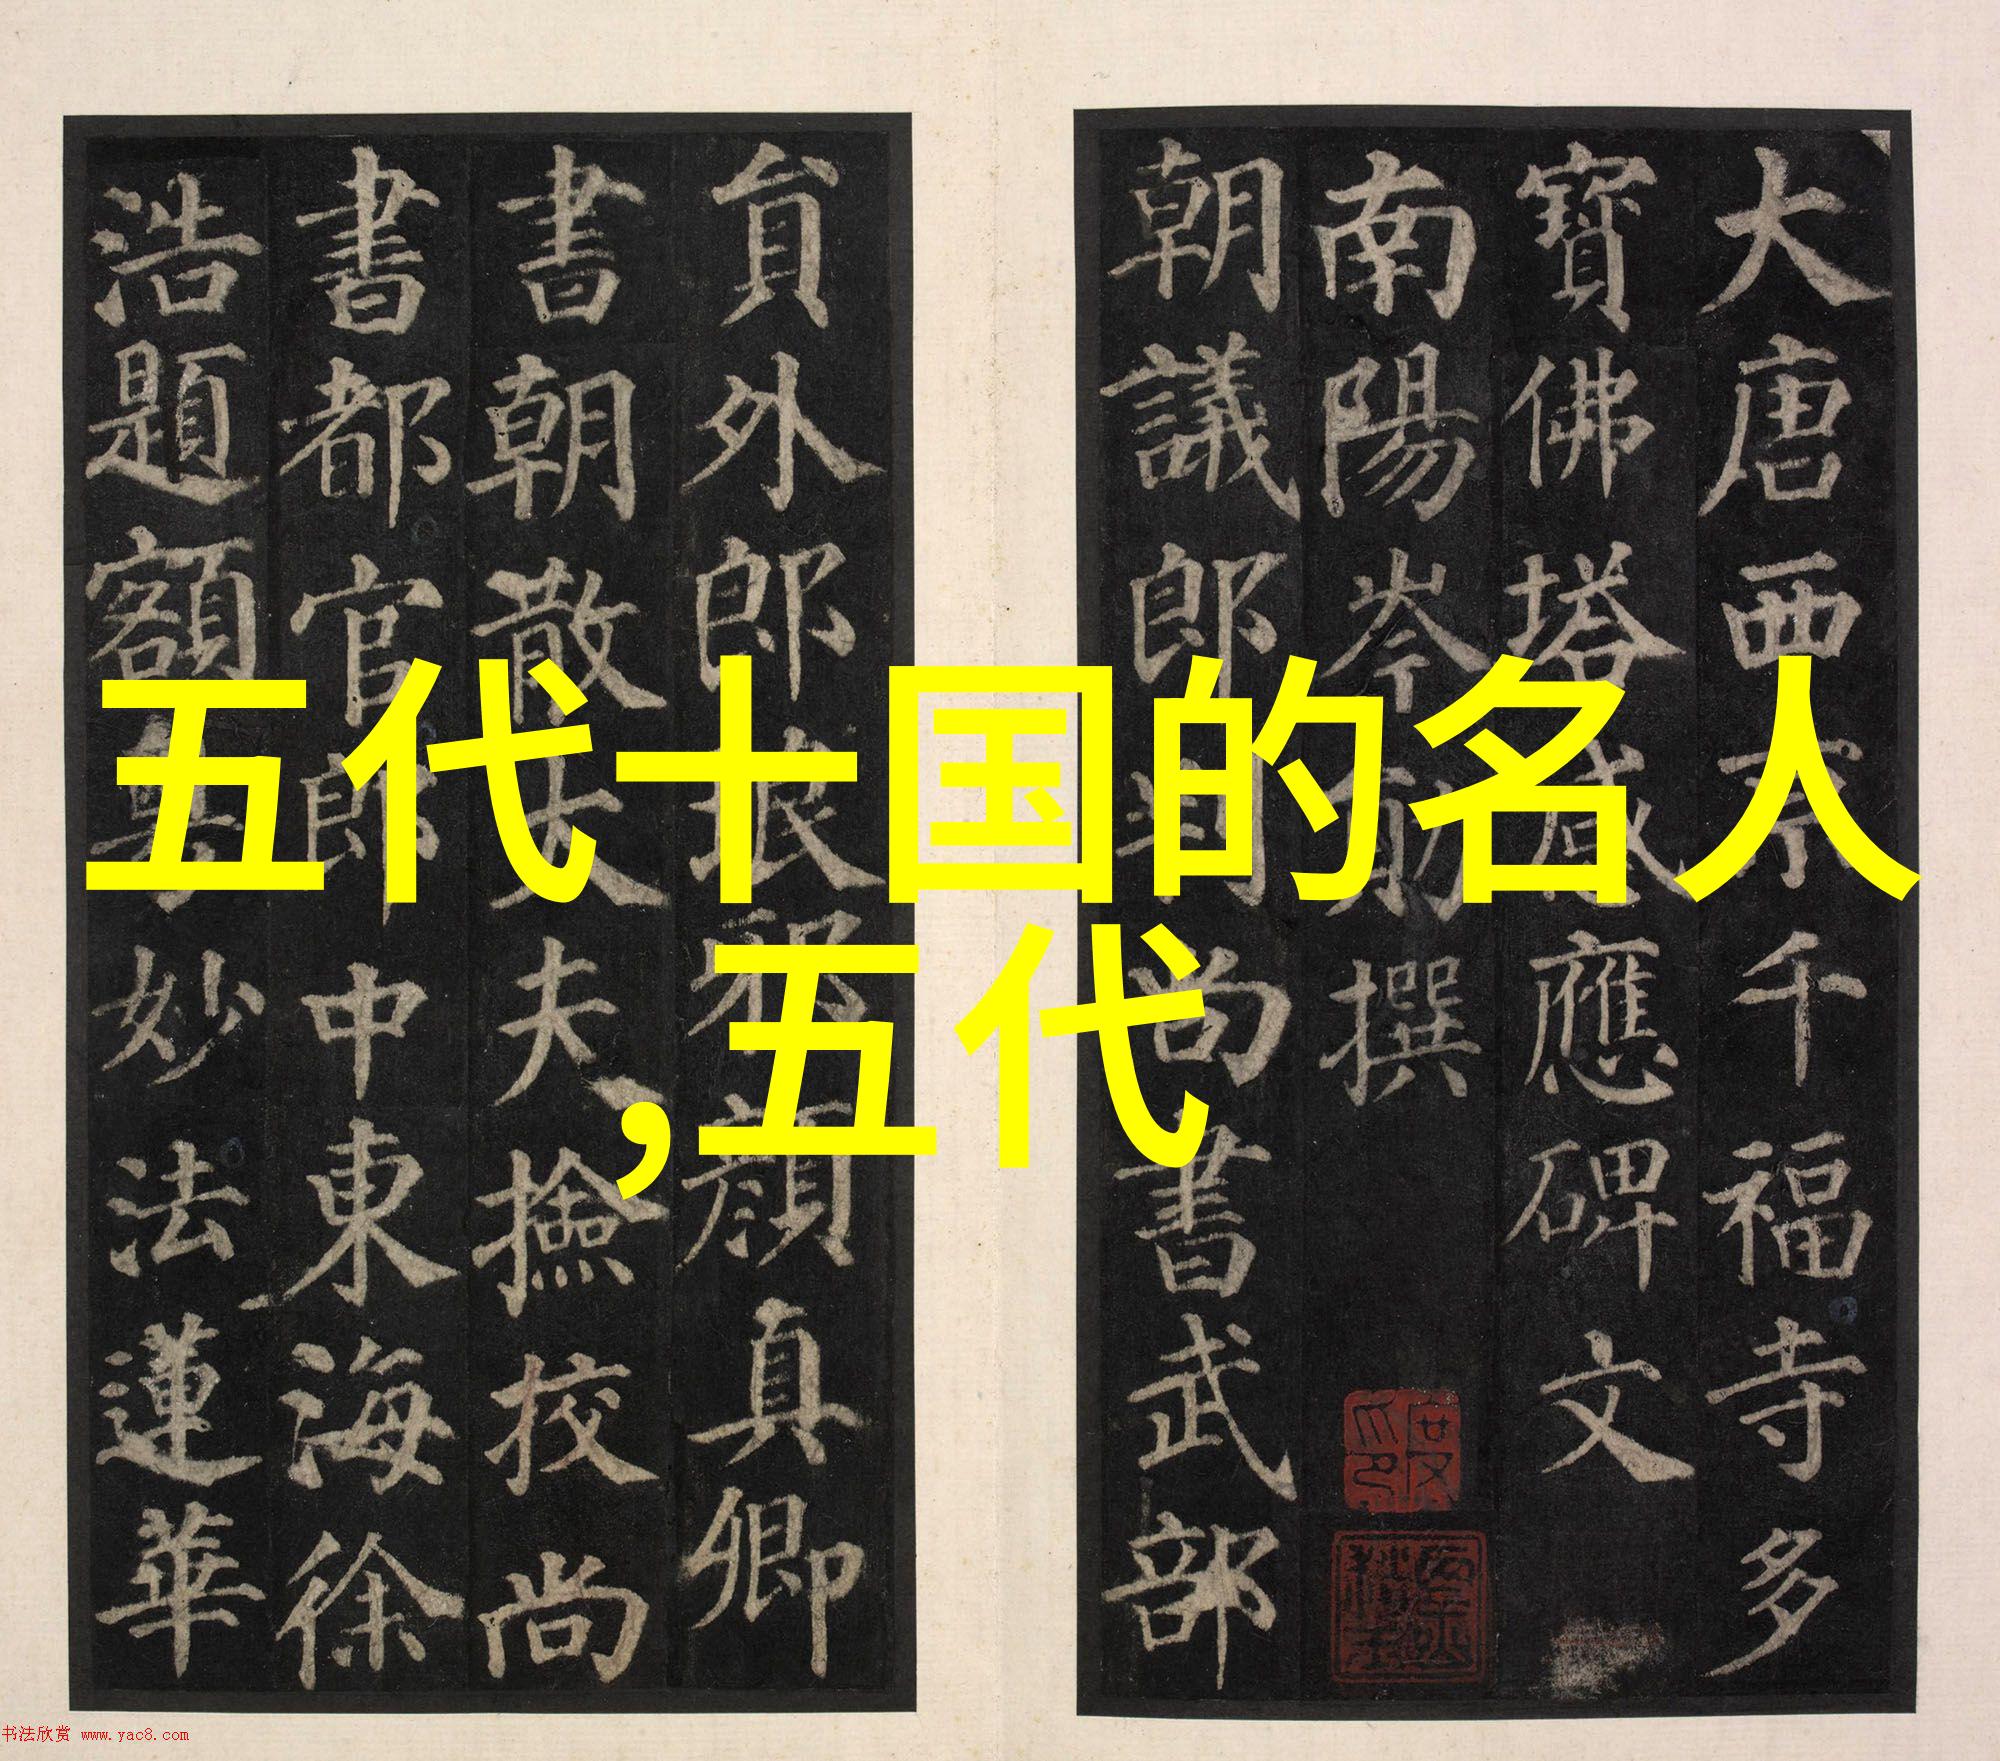 五代十国的名人
,五代
大唐西京千福寺多
寶佛塔感應碑文
南陽岑勛撰
朝議郎判尚書武部
貟外郎琅邪顏真卿
書朝散大夫撿校尚
書都官郎中東海徐
浩題額
妙法蓮華
书法欣赏 www.yac8.com